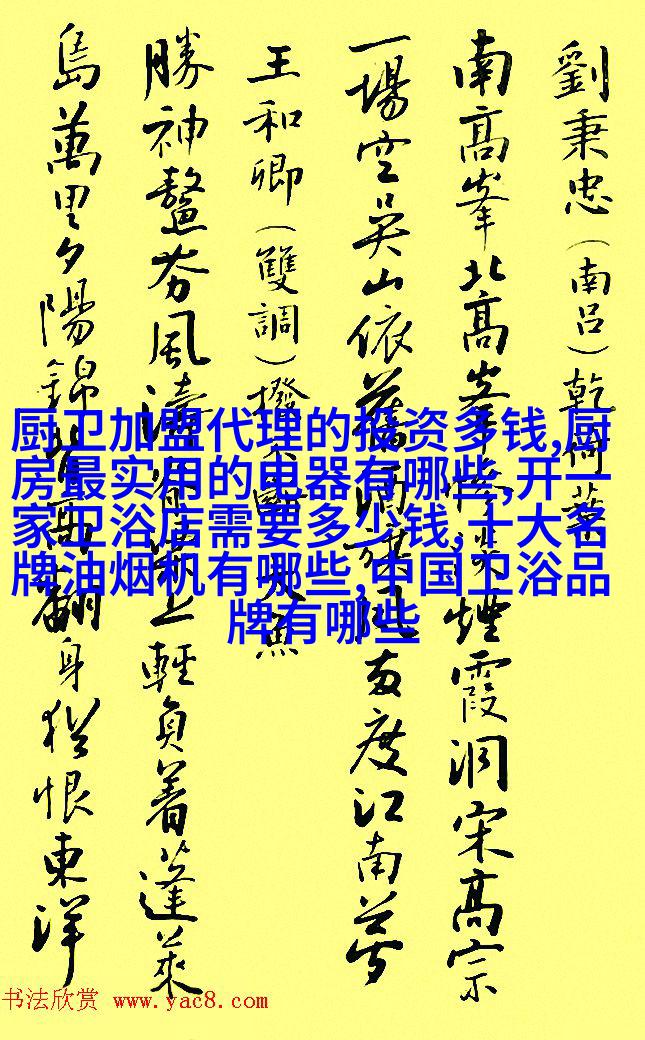 劉秉忠(南呂)乾荷葉
南高峯北高峯慘淡煙霞洞宋高宗
一場空吳山依舊酒旗風兩度江南夢
王和卿(雙調)撥不斷 大魚
勝神鼇夯風濤脊梁上輕負着蓬萊
島萬里夕陽錦背高翻身猶恨東洋
厨卫加盟代理的投资多钱,厨
房最实用的电器有哪些,开一
家卫浴店需要多少钱,十大名
牌油烟机有哪些,中国卫浴品
牌有哪些
书法欣赏 www.yac8.com